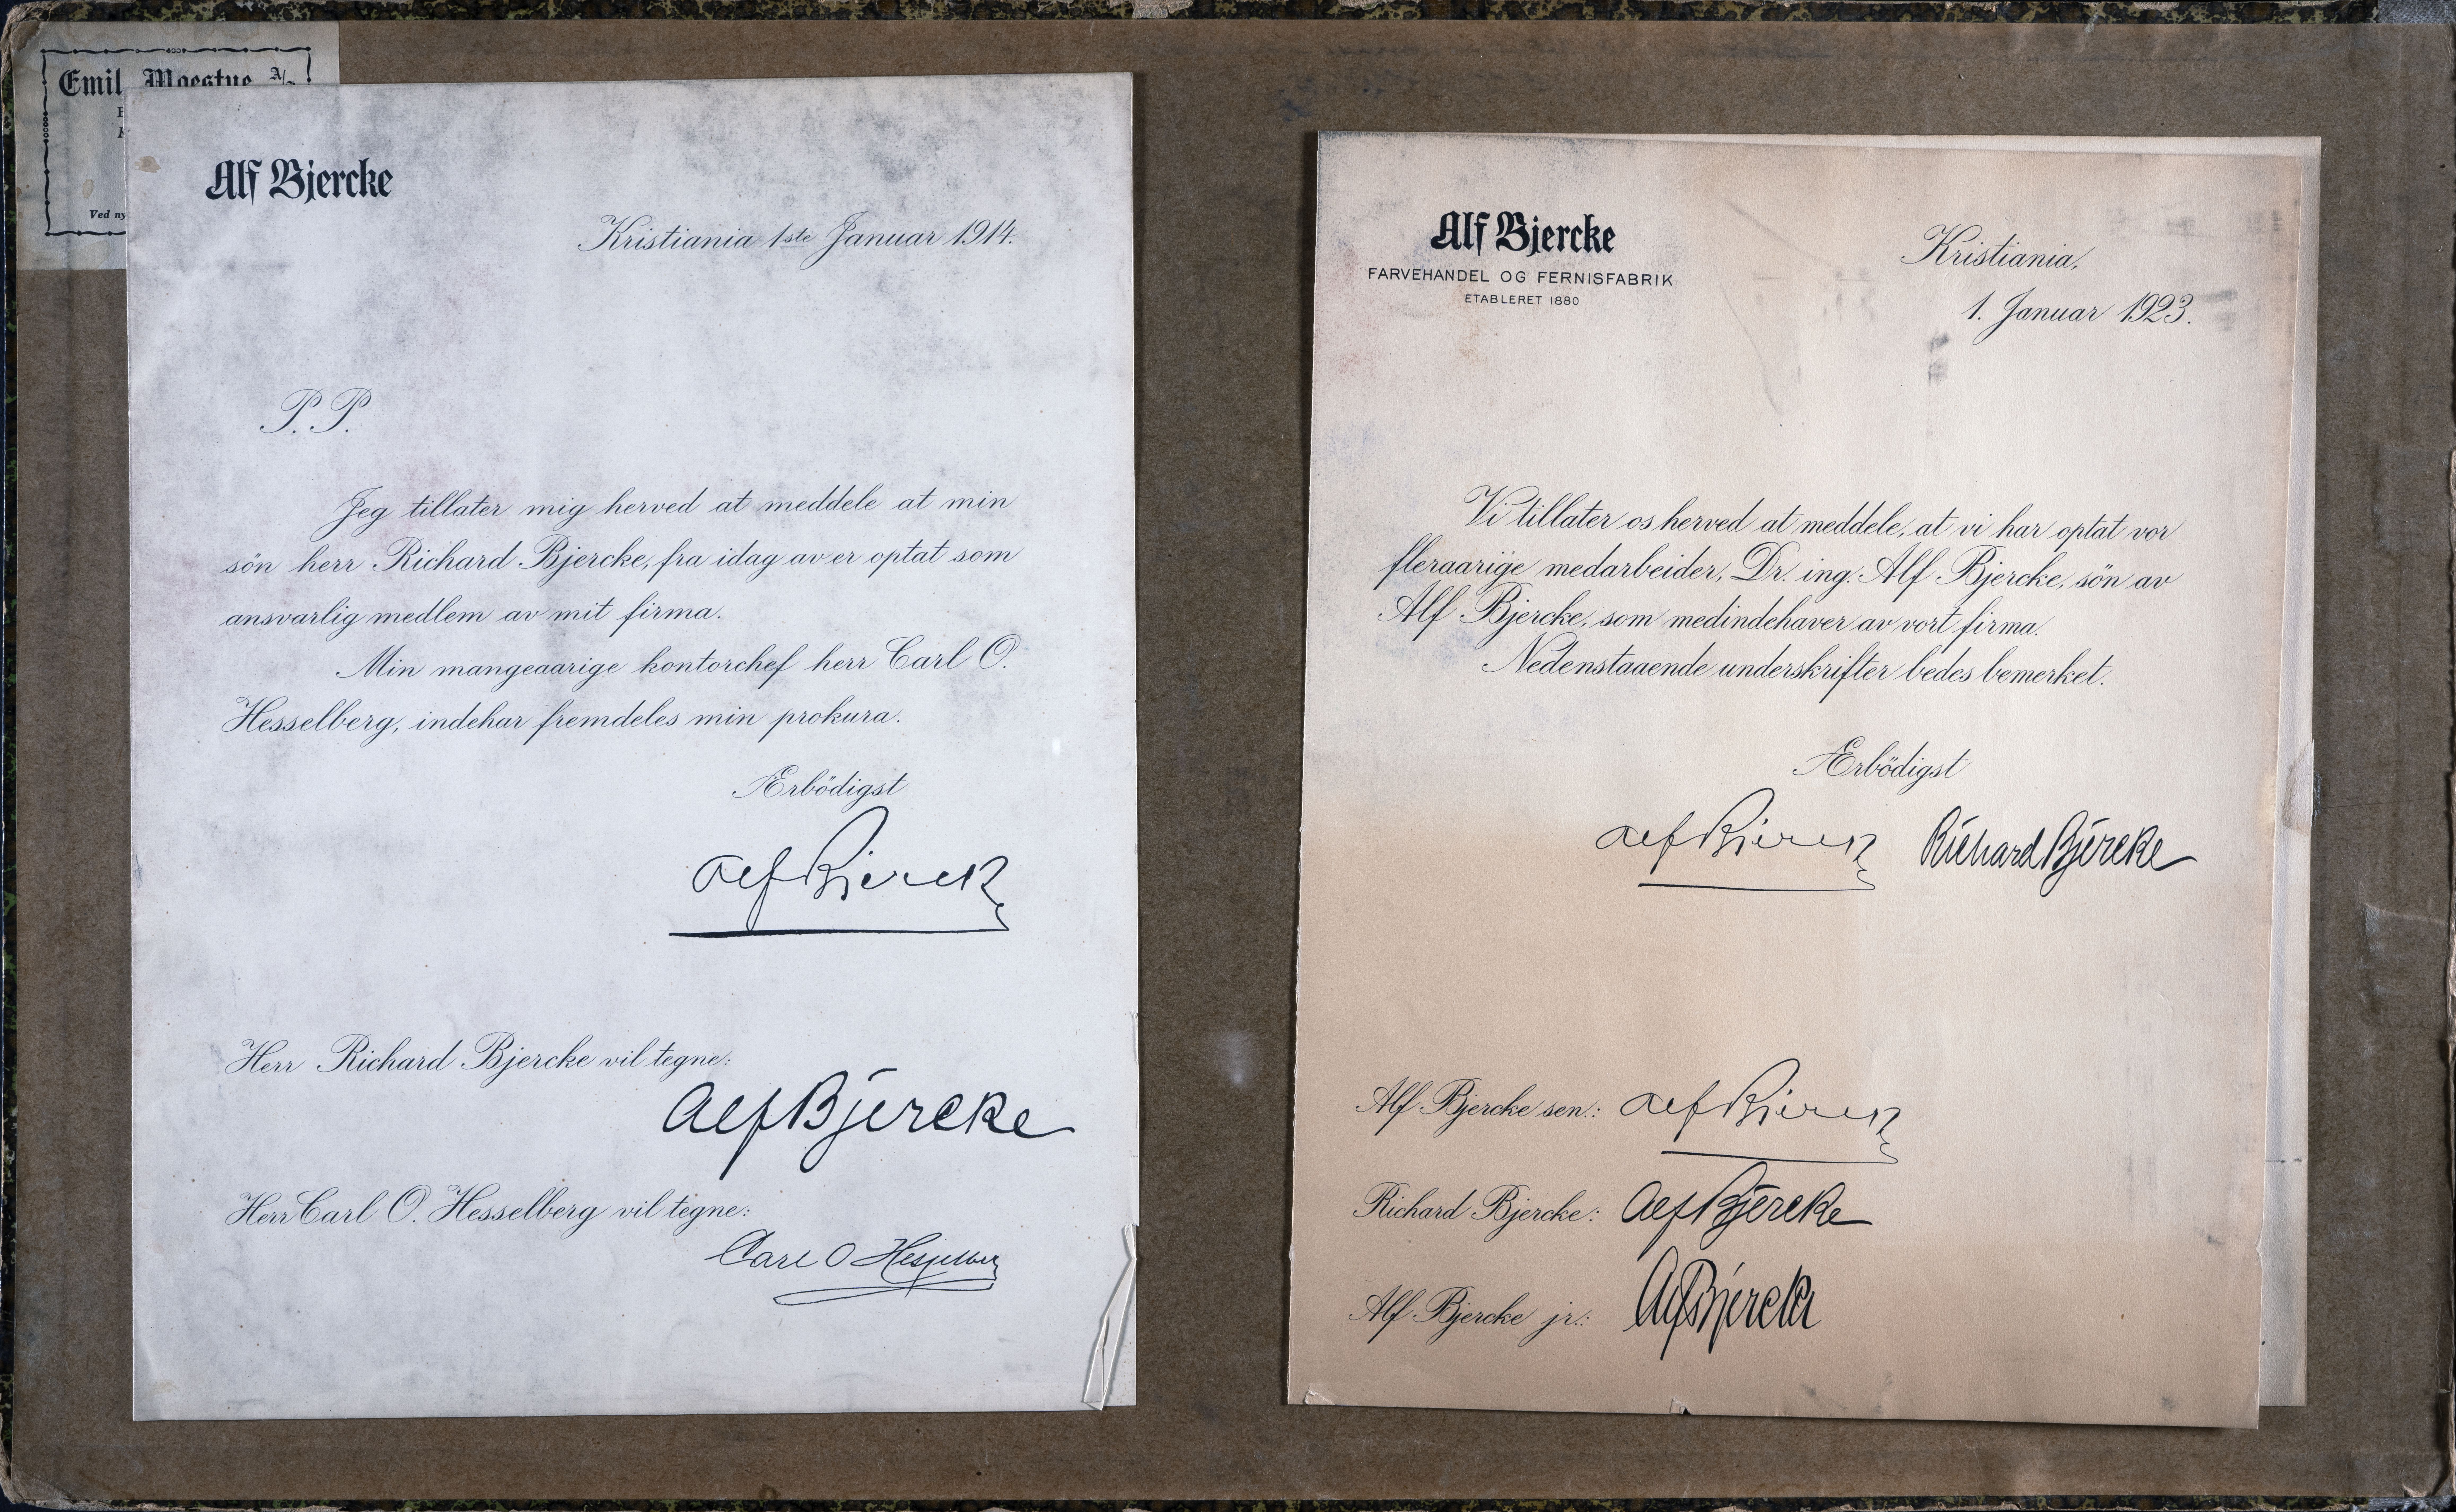 Emil Moestue A/
Ved ny
Alf Bjercke
Kristiania 1ste Januar 1914.
P. P.
Jeg tillater mig herved at meddele at min
sön herr Richard Bjercke, fra idag av er optat som
ansvarlig medlem av mit firma.
Min mangeaarige kontorchef herr Carl O.
Hesselberg, indehar fremdeles min prokura.
Ærbödigst
Alf Bjercke
Herr Richard Bjercke vil tegne:
Alf Bjercke
Herr Carl O. Hesselberg vil tegne:
Carl O Hesselberg
Alf Bjercke
FARVEHANDEL OG FERNISFABRIK
ETABLERET 1880
Kristiania,
1. Januar 1923.
Vi tillater os herved at meddele, at vi har optat vor
fleraarige medarbeider, Dr. ing. Alf Bjercke, sön av
Alf Bjercke, som medindehaver av vort firma.
Nedenstaaende underskrifter bedes bemerket.
Ærbödigst
Alf Bjercke Richard Bjercke
Alf Bjercke sen.: Alf Bjercke
Richard Bjercke: Alf Bjercke
Alf Bjercke jr.: Alf Bjercke